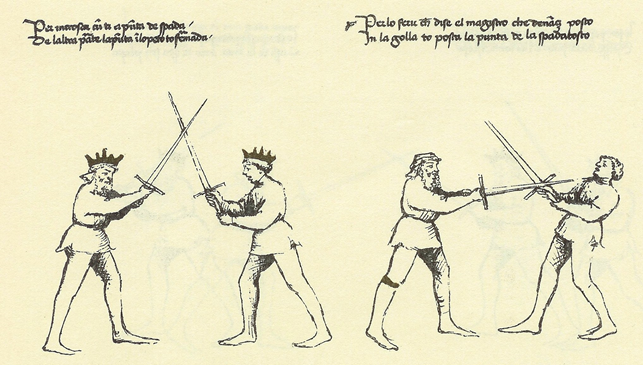 Per incrosar cū ti a pūta de spada /
De laltra pāte la pūta ī lo peto to fermada ·
Per lo ferir ch̄ dise el magistro che denāz posto
In la golla to posta la punta de la spada tosto